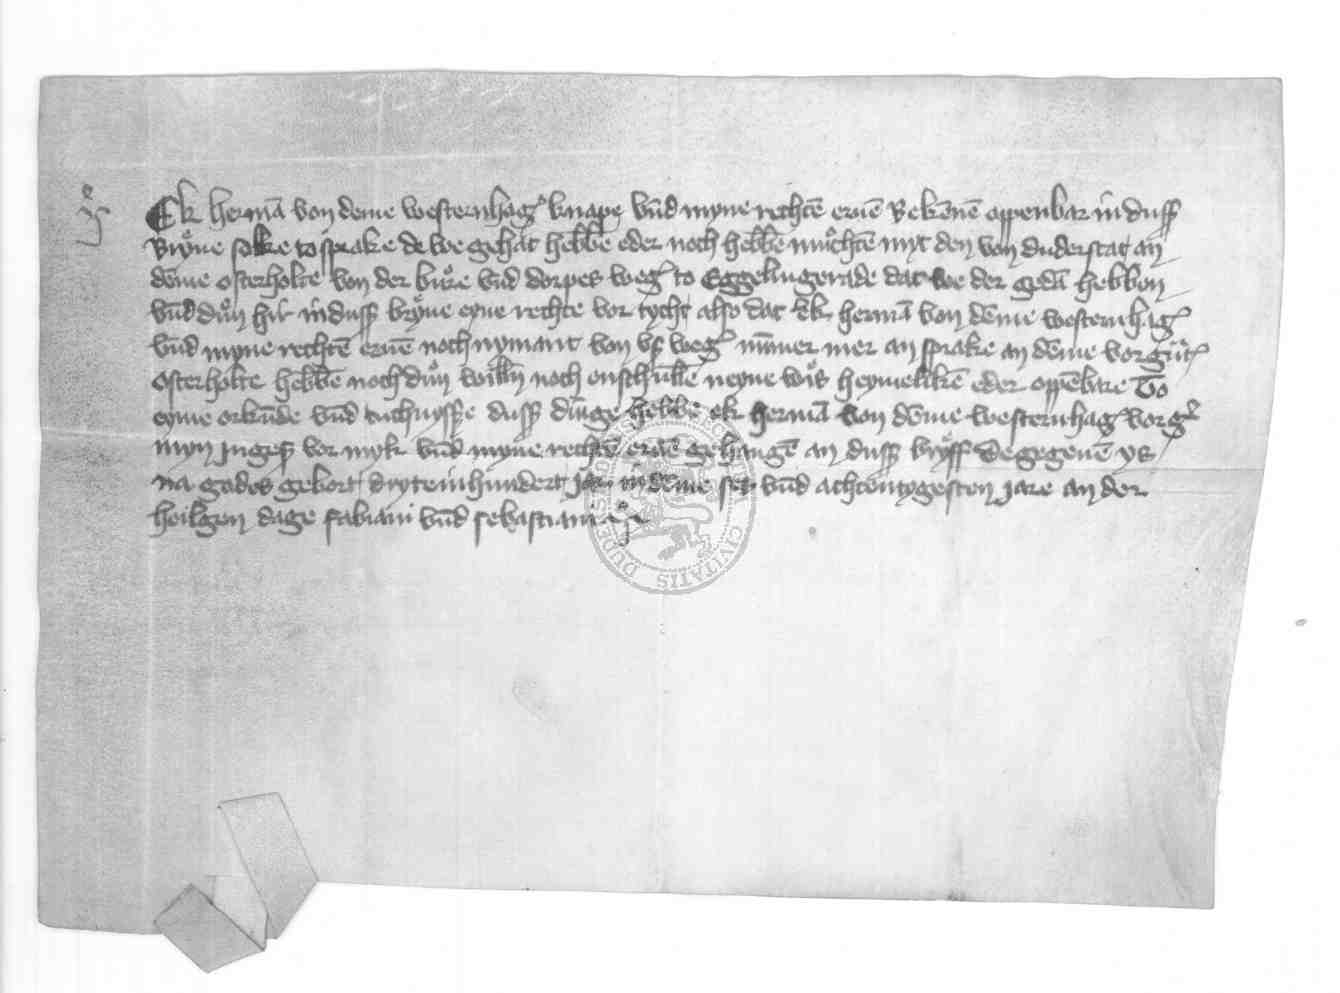 Ek hermā von deme westernhag' knape vnd myne rechtē eruē bekēnē oppenbar in duss
bryue solke to sprake de we gehat hebbē eder noch hebbē muchtē myt den von duderstat an
dēme osterholte von der bure vnd dorpes weg' to Eggelingerade dat we der gedā hebbon
vnd dun hir in duss bryue eyne rechte vor tycht also dat ek hermā von dēme westernhag'
vnd myne rechtē eruē noch nymant von vs weg' nūmer mer an sprake an dēme vorgūt'
osterholte hebbē noch dun willn noch enschullē neyne wis heymelikē eder oppēbare To
eyme orkūde vnd tuchnysse duss dinge hebbe ek hermā von dēme westernhag' vorg'
myn Inges' vor myk vnd myne rechtē eruē gehangē an duss bryff De gegeuē ys
na godes gebort dryteinhundert jar in dēme ses vnd achtentygesten jare an der
heilgen dage fabiani vnd sebastiani
CIVITATIS